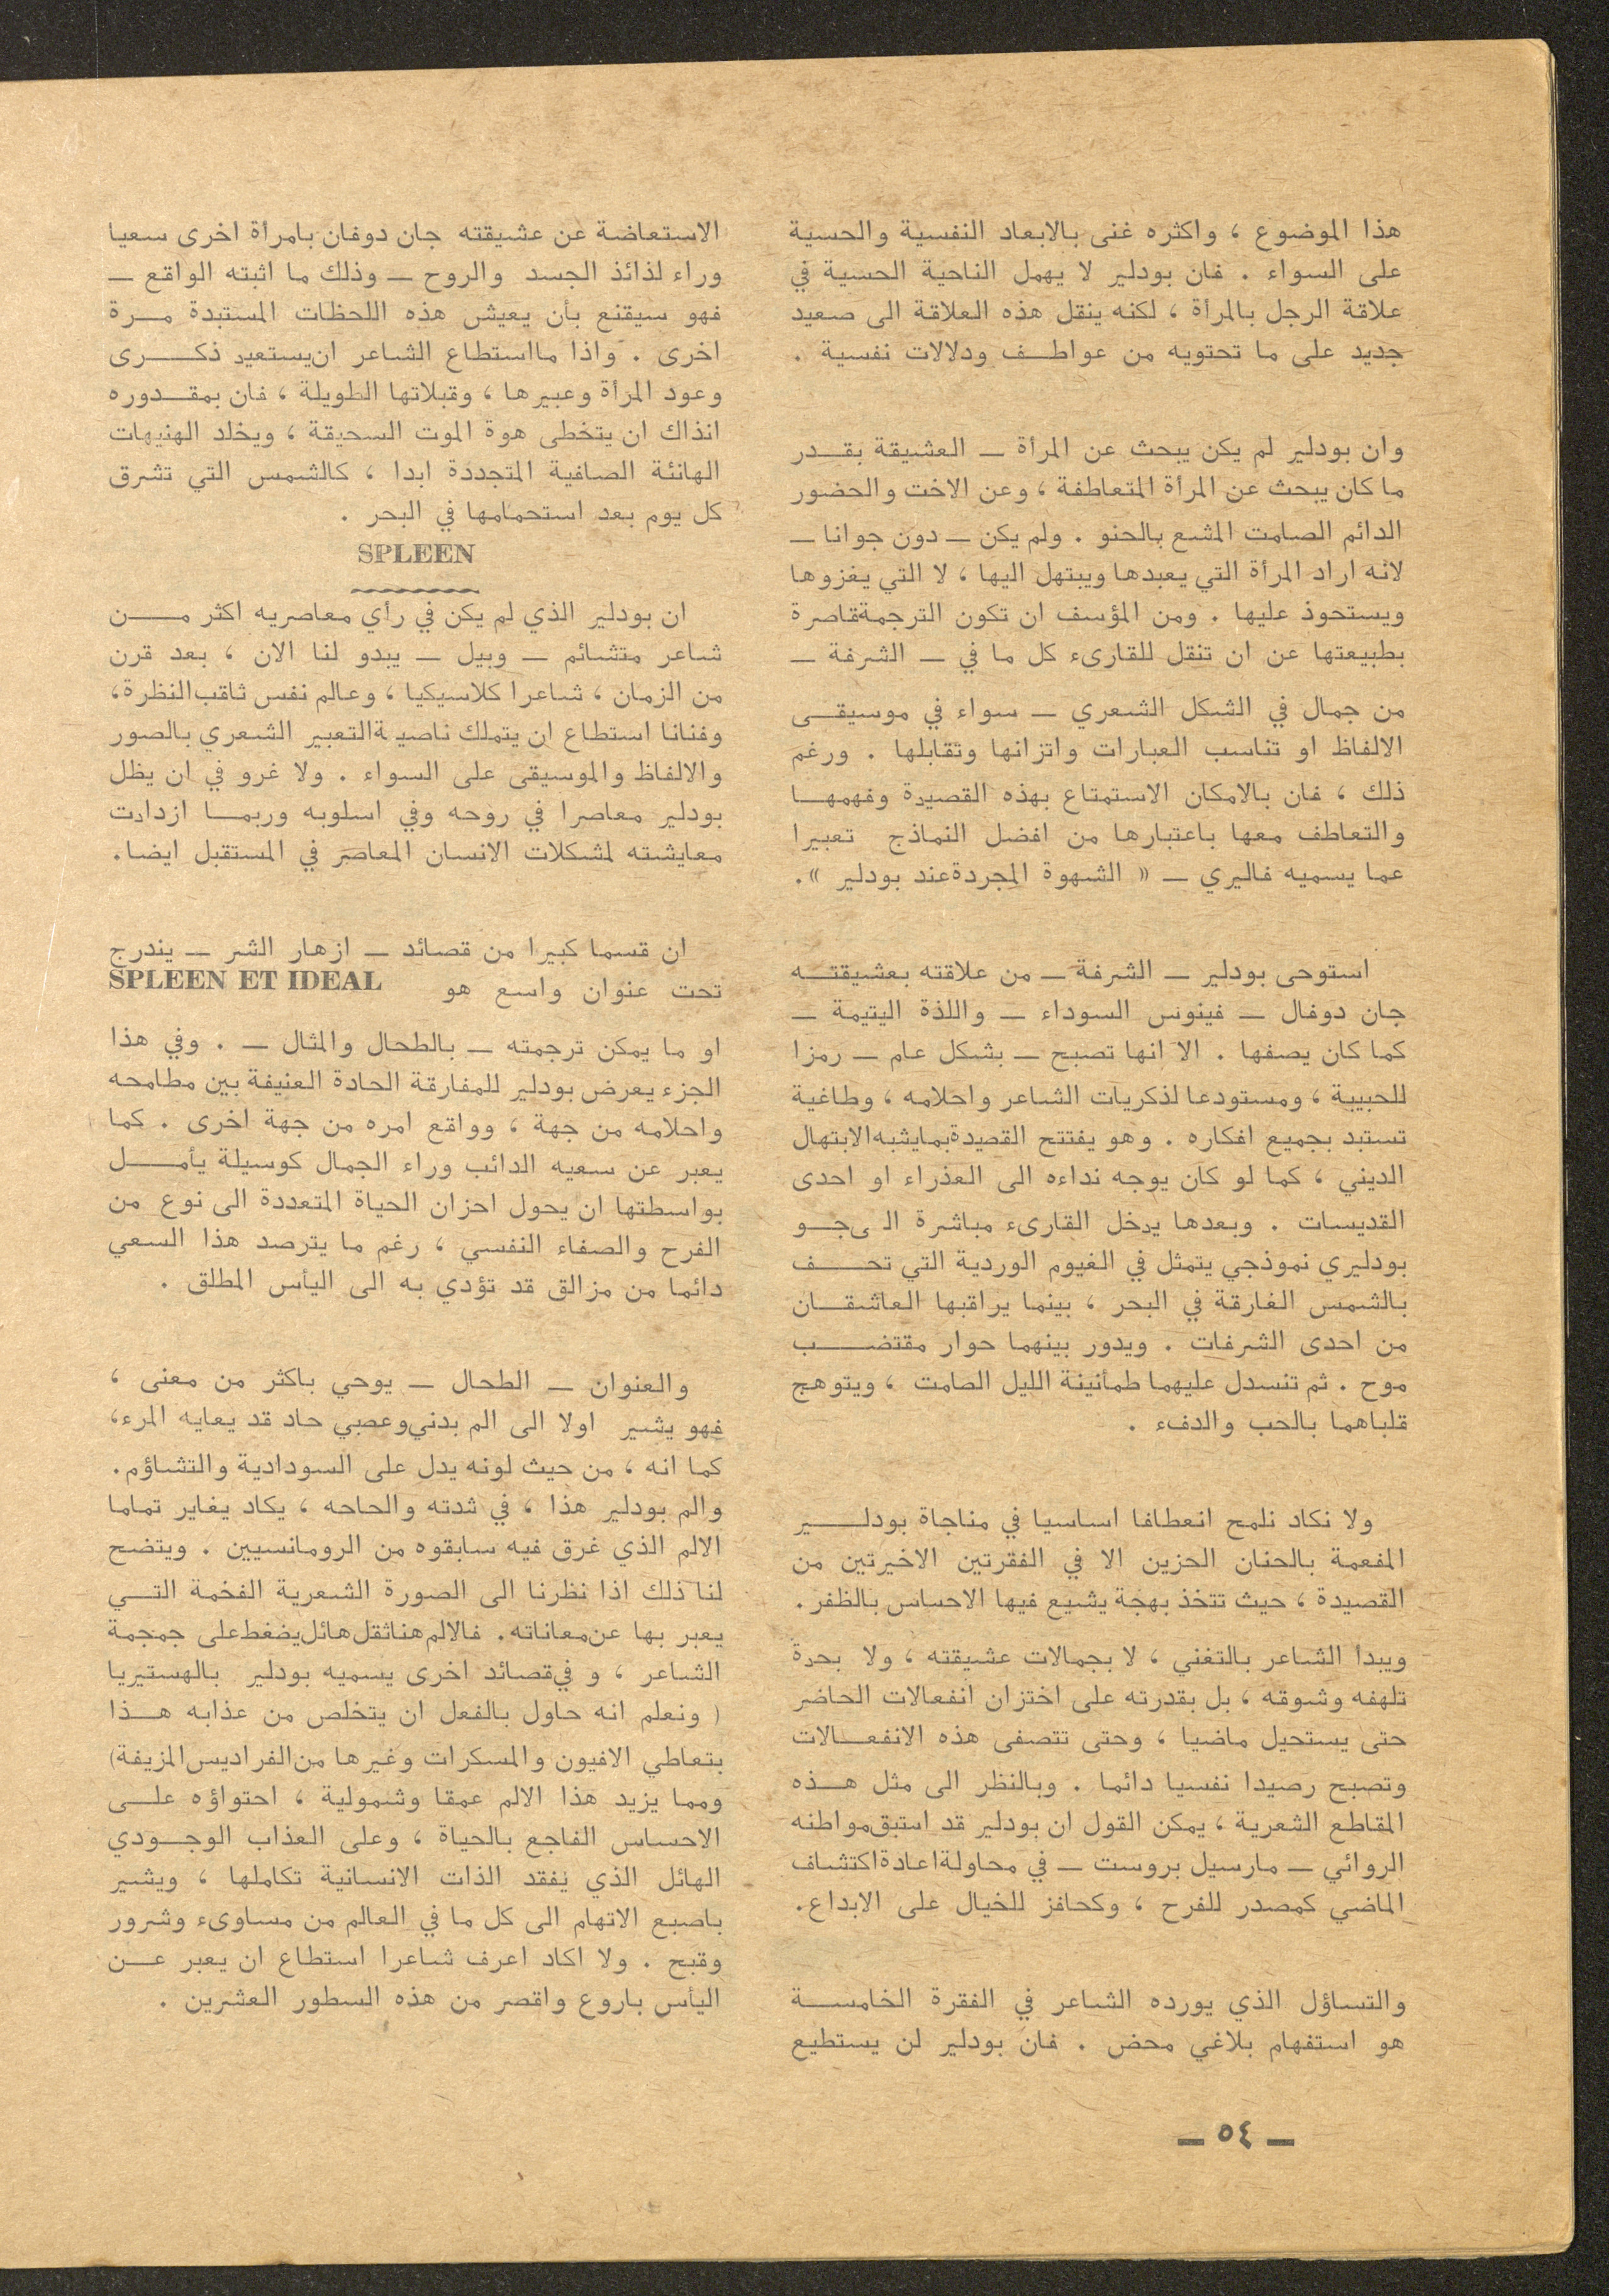 هذا الموضوع ، واكثره غنى بالابعاد النفسية والحسية
على السواء . فان بودلير لا يهمل الناحية الحسية في
علاقة الرجل بالمرأة ، لكنه ينقل هذه العلاقة الى صعيد
جديد على ما تحتويه من عواطف ودلالات نفسية .
وان بودلير لم يكن يبحث عن المرأة ــ العشيقة بقدر
ما كان يبحث عن المرأة المتعاطفة ، وعن الاخت والحضور
الدائم الصامت المشع بالحنو . ولم يكن ــ دون جوانا ــ
لانه اراد المرأة التي يعبدها ويبتهل اليها ، لا التي يغزوها
ويستحوذ عليها . ومن المؤسف ان تكون الترجمة قاصرة
بطبيعتها عن ان تنقل للقارىء كل ما في ــ الشرفة ــ
من جمال في الشكل الشعري ــ سواء في موسيقى
الالفاظ او تناسب العبارات واتزانها وتقابلها . ورغم
ذلك ، فان بالامكان الاستمتاع بهذه القصيدة وفهمها
والتعاطف معها باعتبارها من افضل النماذج تعبيرا
عما يسميه فاليري ــ « الشهوة المجردة عند بودلير ».
استوحى بودلير ــ الشرفة ــ من علاقته بعشيقته
جان دوفال ــ فينوس السوداء ــ واللذة اليتيمة ــ
كما كان يصفها . الا انها تصبح ــ بشكل عام ــ رمزا
للحبيبة ، ومستودعا لذكريات الشاعر واحلامه ، وطاغية
تستبد بجميع افكاره . وهو يفتتح القصيدة بما يشبه الابتهال
الديني ، كما لو كان يوجه نداءه الى العذراء او احدى
القديسات . وبعدها يدخل القارىء مباشرة الى جو
بودليري نموذجي يتمثل في الغيوم الوردية التي تحف
بالشمس الغارقة في البحر ، بينما يراقبها العاشقان
من احدى الشرفات . ويدور بينهما حوار مقتضب
موح . ثم تنسدل عليهما طمأنينة الليل الصامت ، ويتوهج
قلباهما بالحب والدفء .
ولا نكاد نلمح انعطافا اساسيا في مناجاة بودلير
المفعمة بالحنان الحزين الا في الفقرتين الاخيرتين من
القصيدة ، حيث تتخذ بهجة يشيع فيها الاحساس بالظفر.
ويبدا الشاعر بالتغني ، لا بجمالات عشيقته ، ولا بحدة
تلهفه وشوقه ، بل بقدرته على اختزان انفعالات الحاضر
حتى يستحيل ماضيا ، وحتى تتصفى هذه الانفعالات
وتصبح رصيدا نفسيا دائما . وبالنظر الى مثل هذه
المقاطع الشعرية ، يمكن القول ان بودلير قد استبق مواطنه
الروائي ــ مارسيل بروست ــ في محاولة اعادة اكتشاف
الماضي كمصدر للفرح ، وكحافز للخيال على الابداع.
والتساؤل الذي يورده الشاعر في الفقرة الخامسة
هو استفهام بلاغي محض . فان بودلير لن يستطيع
الاستعاضة عن عشيقته جان دوفان بامرأة اخرى سعيا
وراء لذائذ الجسد والروح ــ وذلك ما اثبته الواقع ــ
فهو سيقنع بأن يعيش هذه اللحظات المستبدة مرة
اخرى . واذا ما استطاع الشاعر ان يستعيد ذكرى
وعود المرأة وعبيرها ، وقبلاتها الطويلة ، فان بمقدوره
انذاك ان يتخطى هوة الموت السحيقة ، ويخلد الهنيهات
الهانئة الصافية المتجددة ابدا ، كالشمس التي تشرق
كل يوم بعد استحمامها في البحر .
SPLEEN
ان بودلير الذي لم يكن في رأي معاصريه اكثر من
شاعر متشائم ــ وبيل ــ يبدو لنا الان ، بعد قرن
من الزمان ، شاعرا كلاسيكيا ، وعالم نفس ثاقب النظرة،
وفنانا استطاع ان يتملك ناصية التعبير الشعري بالصور
والالفاظ والموسيقى على السواء . ولا غرو في ان يظل
بودلير معاصرا في روحه وفي اسلوبه وربما ازدادت
معايشته لمشكلات الانسان المعاصر في المستقبل ايضا.
ان قسما كبيرا من قصائد ــ ازهار الشر ــ يندرج
تحت عنوان واسع هو SPLEEN ET IDEAL
او ما يمكن ترجمته ــ بالطحال والمثال ــ . وفي هذا
الجزء يعرض بودلير للمفارقة الحادة العنيفة بين مطامحه
واحلامه من جهة ، وواقع امره من جهة اخرى . كما
يعبر عن سعيه الدائب وراء الجمال كوسيلة يأمل
بواسطتها ان يحول احزان الحياة المتعددة الى نوع من
الفرح والصفاء النفسي ، رغم ما يترصد هذا السعي
دائما من مزالق قد تؤدي به الى اليأس المطلق .
والعنوان ــ الطحال ــ يوحي باكثر من معنى ،
فهو يشير اولا الى الم بدني وعصبي حاد قد يعايه المرء،
كما انه ، من حيث لونه يدل على السودادية والتشاؤم.
والم بودلير هذا ، في شدته والحاحه ، يكاد يغاير تماما
الالم الذي غرق فيه سابقوه من الرومانسيين . ويتضح
لنا ذلك اذا نظرنا الى الصورة الشعرية الفخمة التي
يعبر بها عن معاناته. فالالم هنا ثقل هائل يضغط على جمجمة
الشاعر ، و في قصائد اخرى يسميه بودلير بالهستيريا
( ونعلم انه حاول بالفعل ان يتخلص من عذابه هذا
بتعاطي الافيون والمسكرات وغيرها من الفراديس المزيفة)
ومما يزيد هذا الالم عمقا وشمولية ، احتواؤه على
الاحساس الفاجع بالحياة ، وعلى العذاب الوجودي
الهائل الذي يفقد الذات الانسانية تكاملها ، ويشير
باصبع الاتهام الى كل ما في العالم من مساوىء وشرور
وقبح . ولا اكاد اعرف شاعرا استطاع ان يعبر عن
اليأس باروع واقصر من هذه السطور العشرين .
ــ ٥٤ ــ